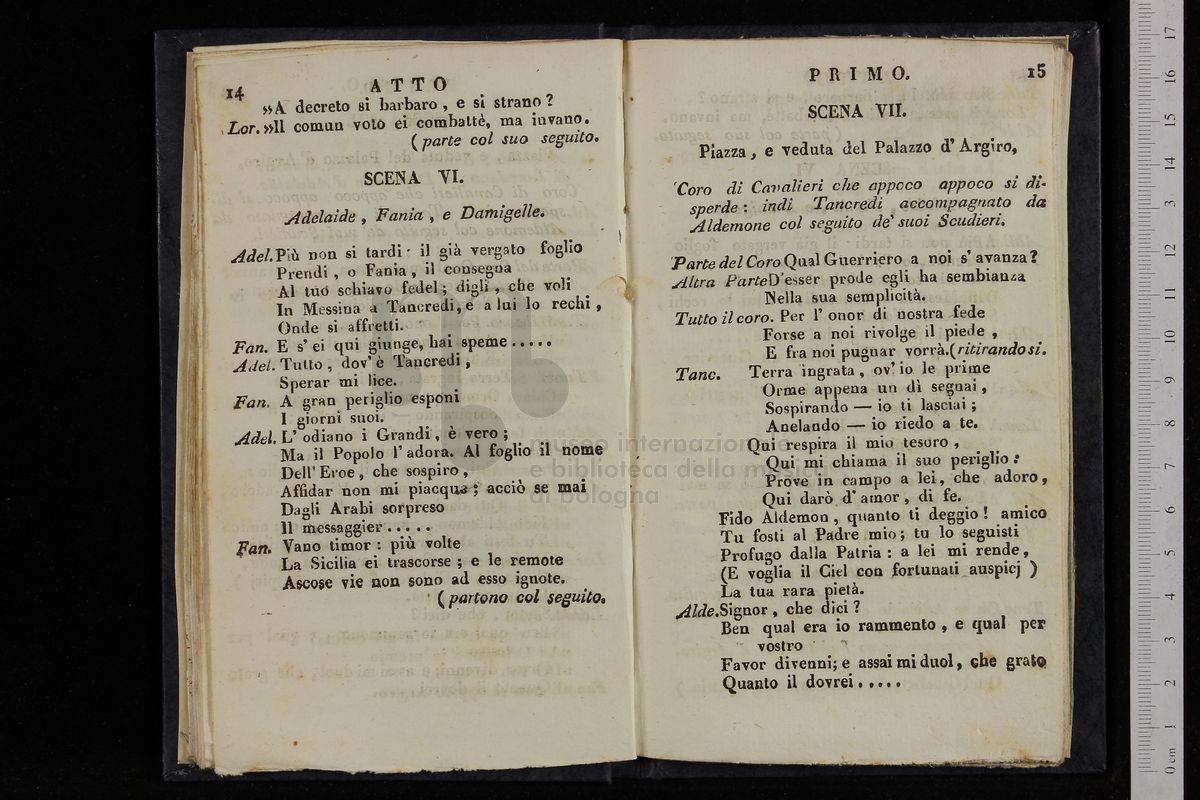 14
ATTO
»A decreto si barbaro, e si strano?
Lor. »Il comun voto ei combattè, ma invano.
(parte col suo seguito.
SCENA VI.
Adelaide, Fania, e Damigelle.
Adel. Più non si tardi: il già vergato foglio
Prendi, o Fania, il consegna
Al tuo schiavo fedel; digli, che voli
In Messina a Tancredi, e a lui lo rechi,
Onde si affretti.
Fan. E s' ei qui giunge, hai speme.....
Adel. Tutto, dov' è Tancredi,
Sperar mi lice.
Fan. A gran periglio esponi
I giorni suoi.
Adel. L' odiano i Grandi, è vero;
Ma il Popolo l' adora. Al foglio il nome
Dell' Eroe, che sospiro,
Affidar non mi piacque; acciò se mai
Dagli Arabi sorpreso
Il messaggier.....
Fan. Vano timor: più volte
La Sicilia ei trascorse; e le remote
Ascose vie non sono ad esso ignote.
(partono col seguito.
PRIMO.
15
SCENA VII.
Piazza, e veduta del Palazzo d' Argiro,
Coro di Cavalieri che appoco appoco si di-
sperde: indi Tancredi accompagnato da
Aldemone col seguito de' suoi Scudieri.
Parte del Coro Qual Guerriero a noi s' avanza?
Altra Parte D' esser prode egli ha sembianza
Nella sua semplicità.
Tutto il coro. Per l' onor di nostra fede
Forse a noi rivolge il piede,
E fra noi pugnar vorrà. (ritirandosi.
Tanc. Terra ingrata, ov' io le prime
Orme appena un dì segnai,
Sospirando — io ti lasciai;
Anelando — io riedo a te.
Qui respira il mio tesoro,
Qui mi chiama il suo periglio:
Prove in campo a lei, che adoro,
Qui darò d' amor, di fe.
Fido Aldemon, quanto ti deggio! amico
Tu fosti al Padre mio; tu lo seguisti
Profugo dalla Patria: a lei mi rende,
(E voglia il Ciel con fortunati auspicj)
La tua rara pietà.
Alde. Signor, che dici?
Ben qual era io rammento, e qual per
vostro
Favor divenni; e assai mi duol, che grato
Quanto il dovrei.....
museo internazionale
e biblioteca della musica
di bologna
0 cm 1 2 3 4 5 6 7 8 9 10 11 12 13 14 15 16 17